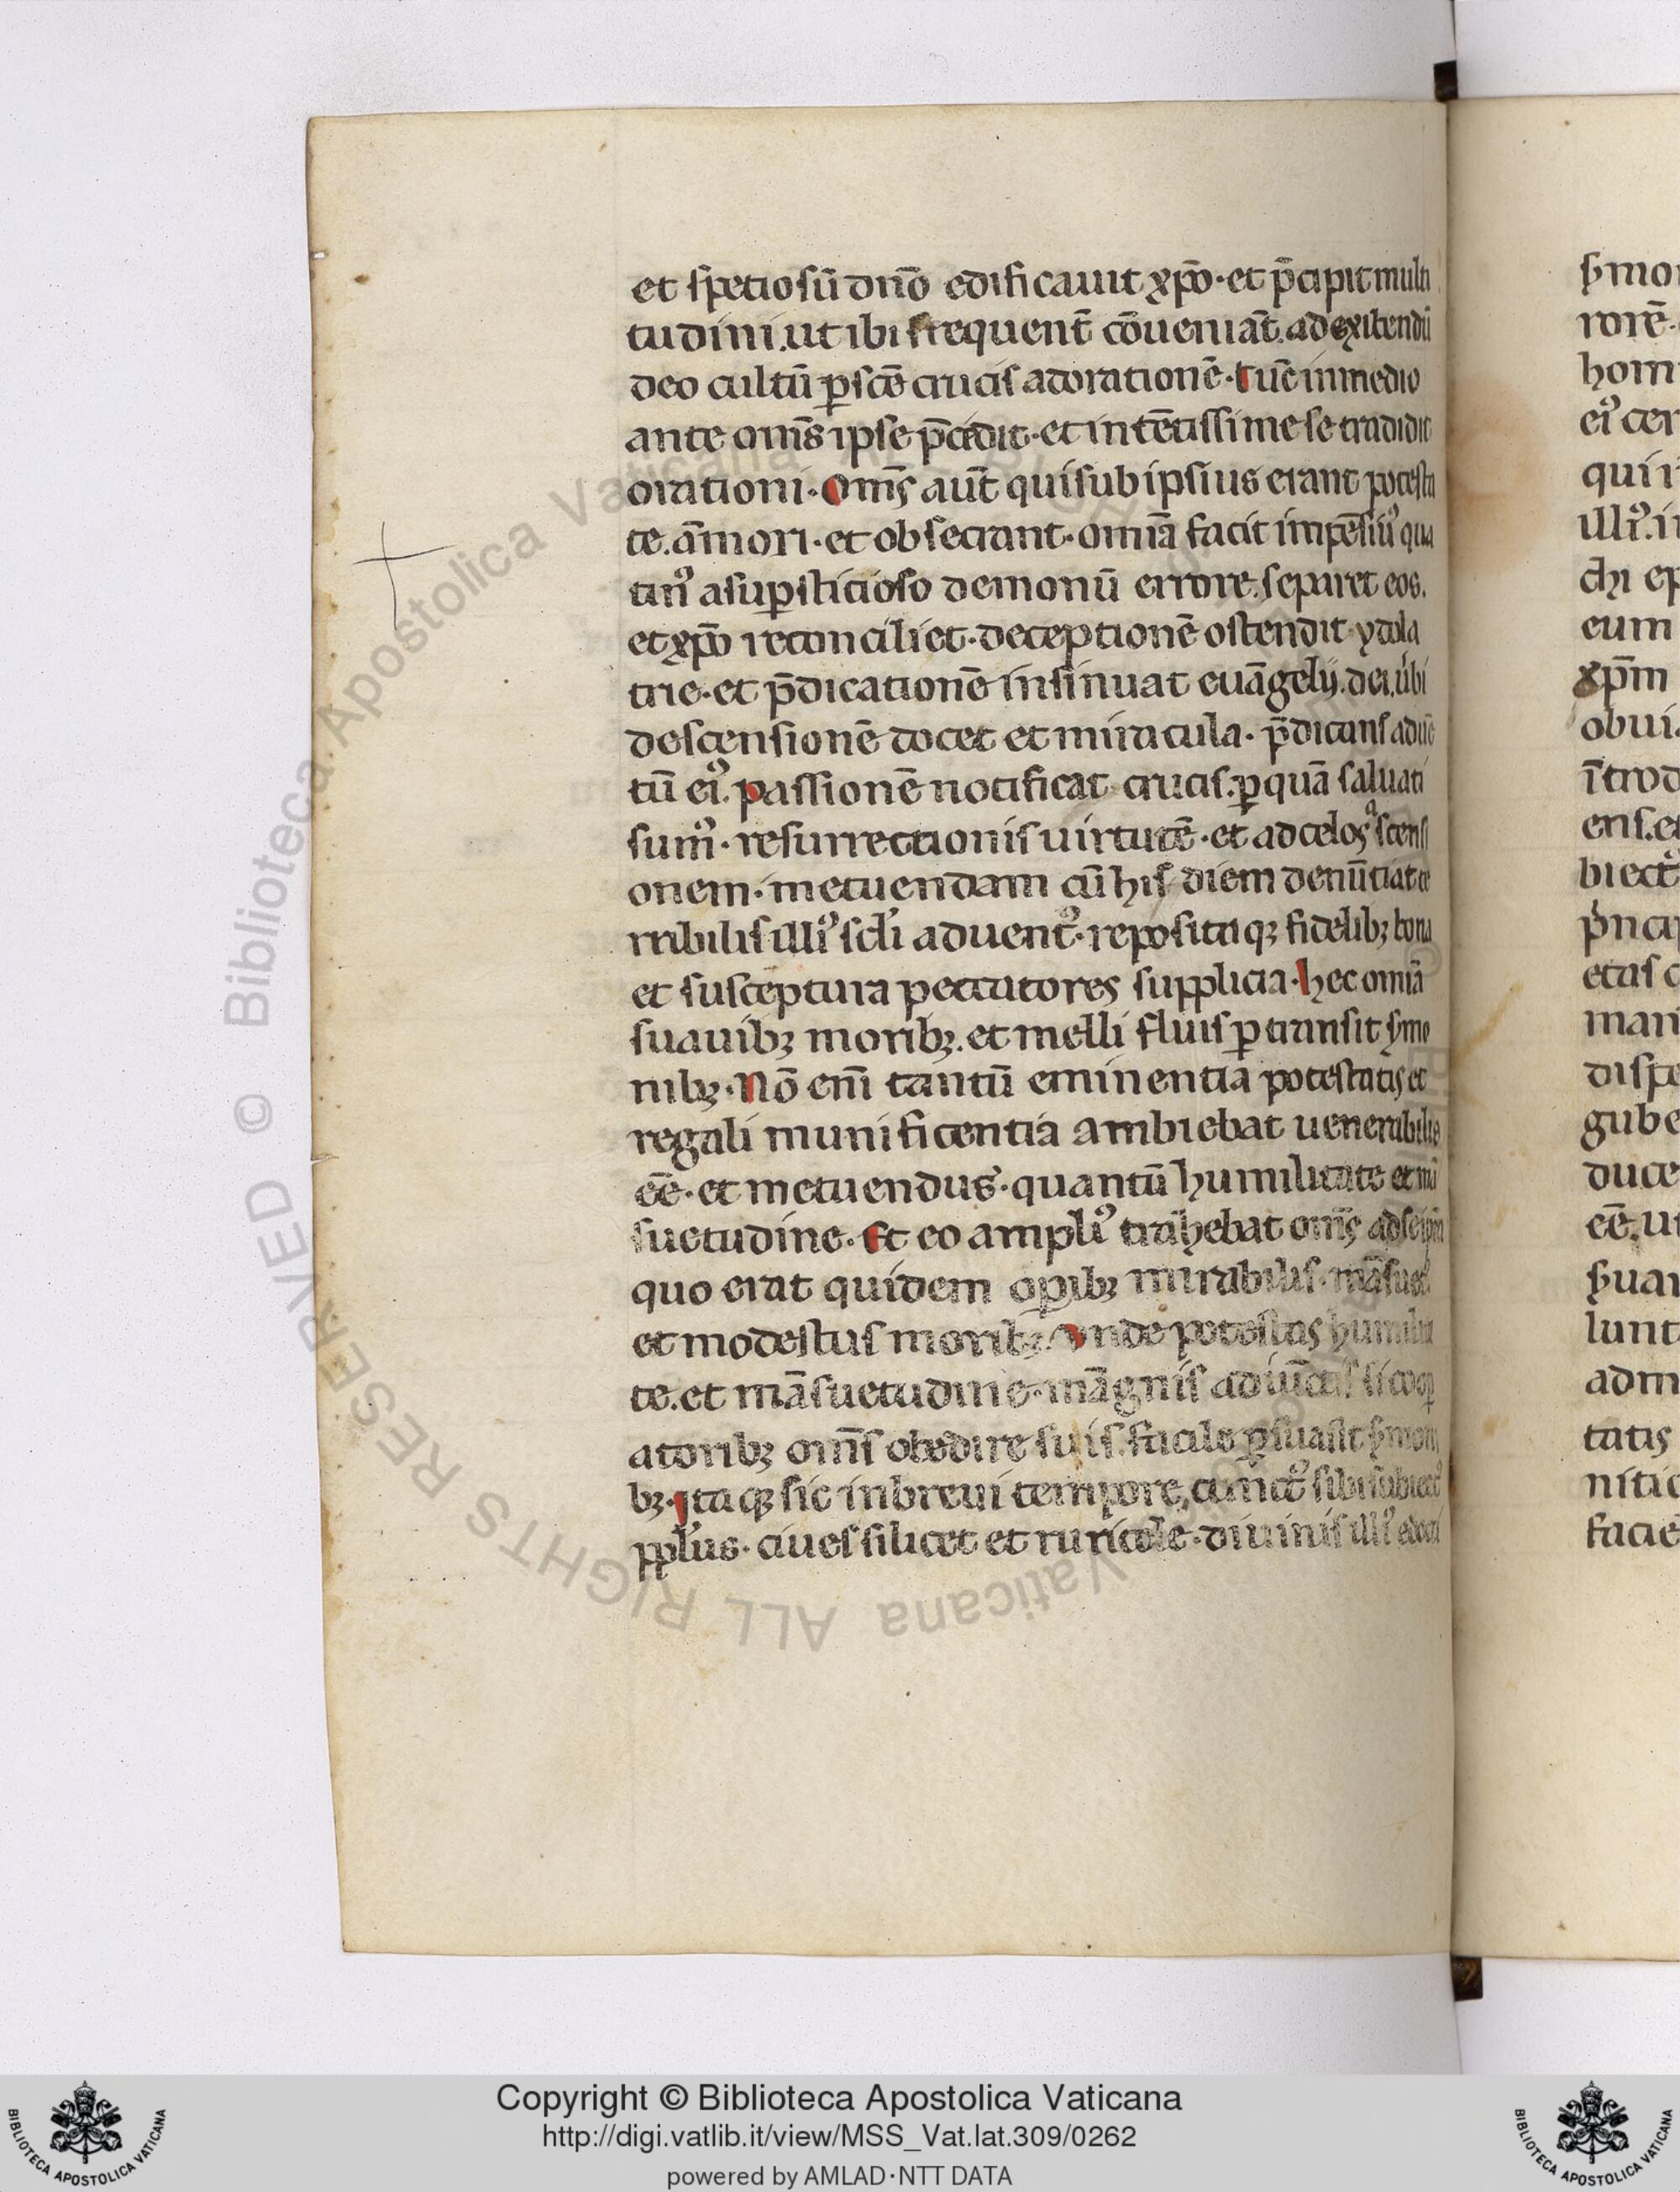 et speciosū dnō edificauit xp̄o · et p̄cipit multi
tudini. ut ibi frequent̄ cōueniāt. ad exibendū
deo cultū p̱ scē crucis adorationē · tūc in medio
ante om̄s ipse p̄cedit · et intētissime se tradidit
orationi · Om̄s aūt qui sub ipsius erant potesta
te. āmori · et obsecrant · omīa facit impēsiuꝰ qua
tinꝰ a suꝑsticioso demonū errore. separet eos.
et xp̄o reconciliet · deceptionē ostendit ydola
trie · et p̄dicationē insinuat euāgelij. dei. ubi
descensionē docet et miracula · p̄dicans aduē
tū eiꝰ. passionē notificat crucis. ꝑ quā saluati
sumꝰ · resurrectionis uirtutē · et ad celos ascensi
onem · metuendam cū his diem denūtiat te
rribilis illiꝰ scdi aduentꝰ · reposita qꝫ fidelibꝫ bona
et susceptura peccatores supplicia · hec omīa
suauibꝫ moribꝫ. et melli fluis ꝑ transit s̄mo
nibꝫ · Nō enī tantū eminentia potestatis et
regali munificentia ambiebat uenerabilis
eē · et metuendus · quantū humilitate et mā
suetudine · Et eo ampliꝰ trahebat om̄s ad seipm̄
quo erat quidem opibꝫ mirabilis · māsuetꝰ
et modestus moribꝫ. Vnde potestas humilita
te. et māsuetudine · māgnis adiūctis si coop
atoribꝫ om̄s obedire suis. facile ꝑsuasit s̄moni
bꝫ · ita qꝫ sic in breui tempore, cunctꝰ sibi subiectꝰ
pplus · ciues silicet et ruricole · diuinis illiꝰ edocti
s̄mo
rorē
hom
eiꝰ cer
qui i
illiꝰ. i
chi ep
eum
xp̄m
obui
ītrod
ens. e
biect
p̄nci
etas
man
dispe
gube
duce
eē. ut
s̄ua
lunt
adm
tatis
nitic
facie
Copyright © Biblioteca Apostolica Vaticana
http://digi.vatlib.it/view/MSS_Vat.lat.309/0262
powered by AMLAD·NTT DATA
BIBLIOTECA APOSTOLICA VATICANA
BIBLIOTECA APOSTOLICA VATICANA
© Biblioteca Apostolica Vaticana ALL RIGHTS RESERVED